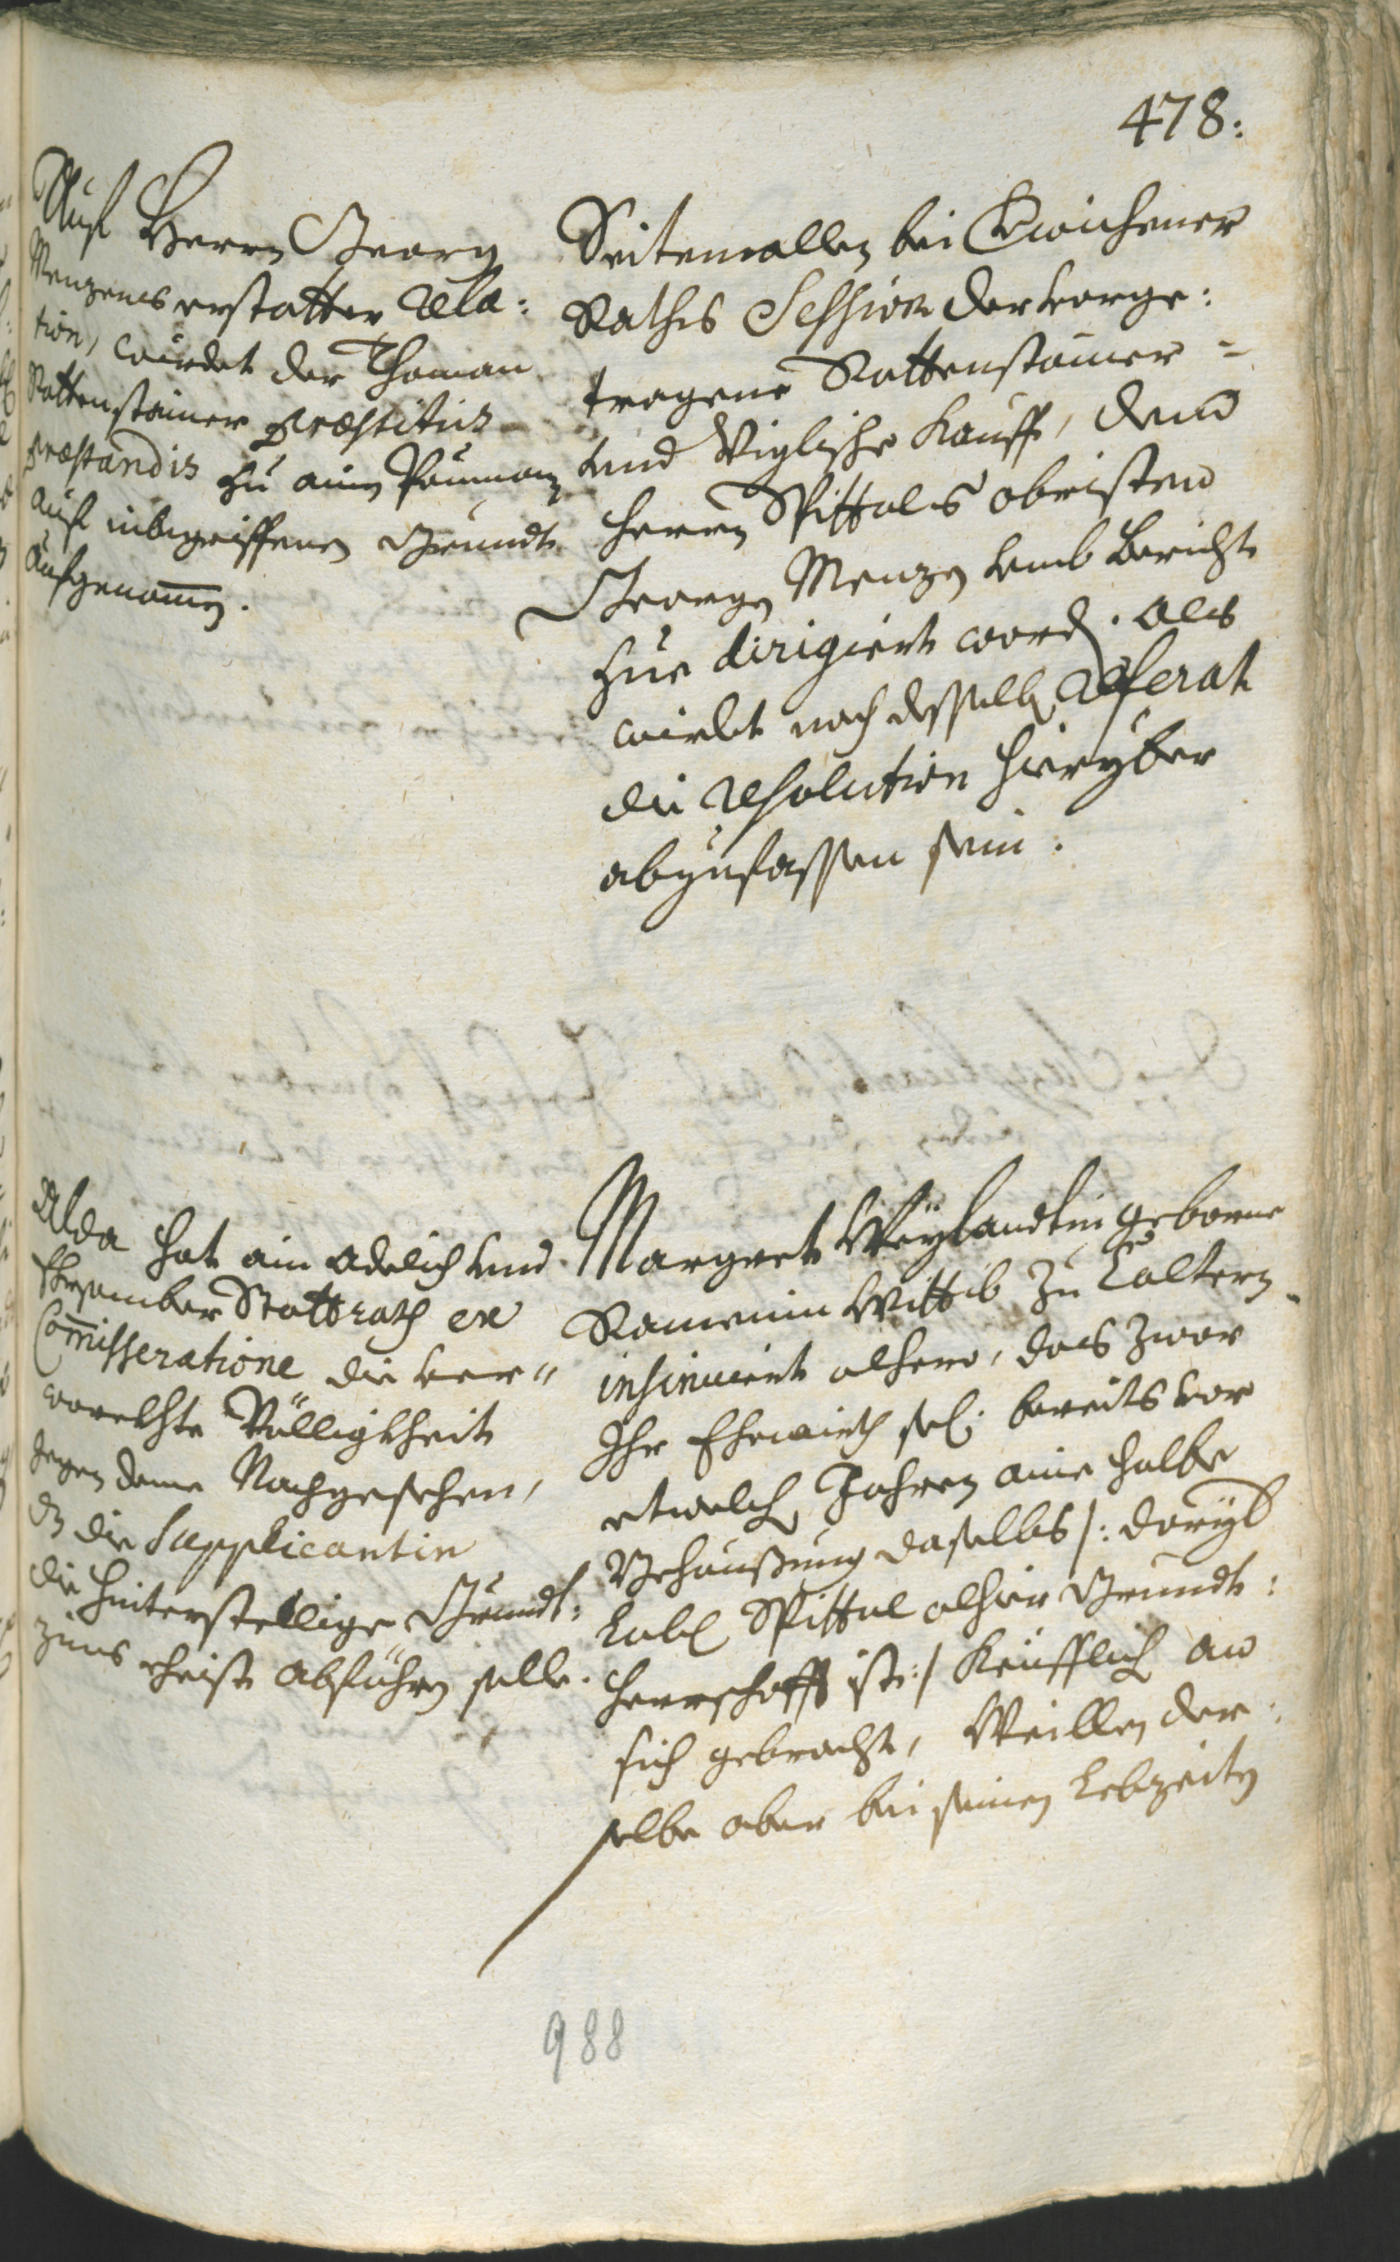 478:
Auf Herrn Georg
Menzens erstatten Rela:
tion, würdet der Thoman
Rottenstainer præstitis
præstandis zu ain Paumann
auf inbegriffenen Grundt
aufgenomen.
Seitemallen bei Gewichener
Raths Session der vorge:
tragene Rottenstainer=
und Viglische Kauff, dem
Herrn Spittals obristen
Georgen Menzen umb Bericht
zue dirigiert word. als
wirdet nach desselb Referat
die Resolution hieryber
abzufassen sein.
Alda hat ain Adelich und
Ersamber Stattrath ex
Commisseratione die ver=
worchte Völligkheit
gegen deme Nachgesehen,
dz die Supplicantin
die hinterstellige Grundt:
zins eheist abführen solle.
Margret Weylandtin geborne
Ramenin Wittib zu Caltern
insinuiert alhero, das zwar
Ihr Ehewirth sel. bereits vor
etwelch Jahren aine halbe
Behaußung daselbs /: daryb
Löbl Spittal alhier Grundt:
herrschafft ist :/ Keufflich an
sich gebracht, Weillen der
selbe aber bei seinen Lebzeiten
988